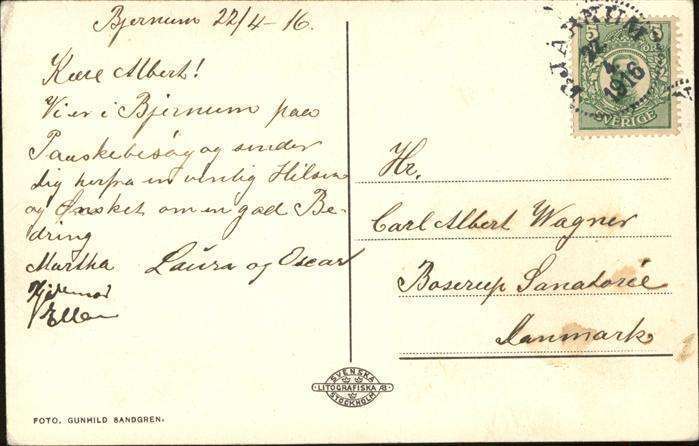 Bjernum 22/4-16.
Kære Albert!
Vi er i Bjernum paa
Paaskebesøg og sender
dig herfra en venlig Hilsen
og Ønsket om en god Be-
dring
Martha Laura og Oscar
Ellen
BJÄRNUM
22
4
1916
5
SVERIGE
Hr.
Carl Albert Wagner
Boserup Sanatorie
Danmark.
SVENSKA
LITOGRAFISKA AB
STOCKHOLM
FOTO. GUNHILD SANDGREN.